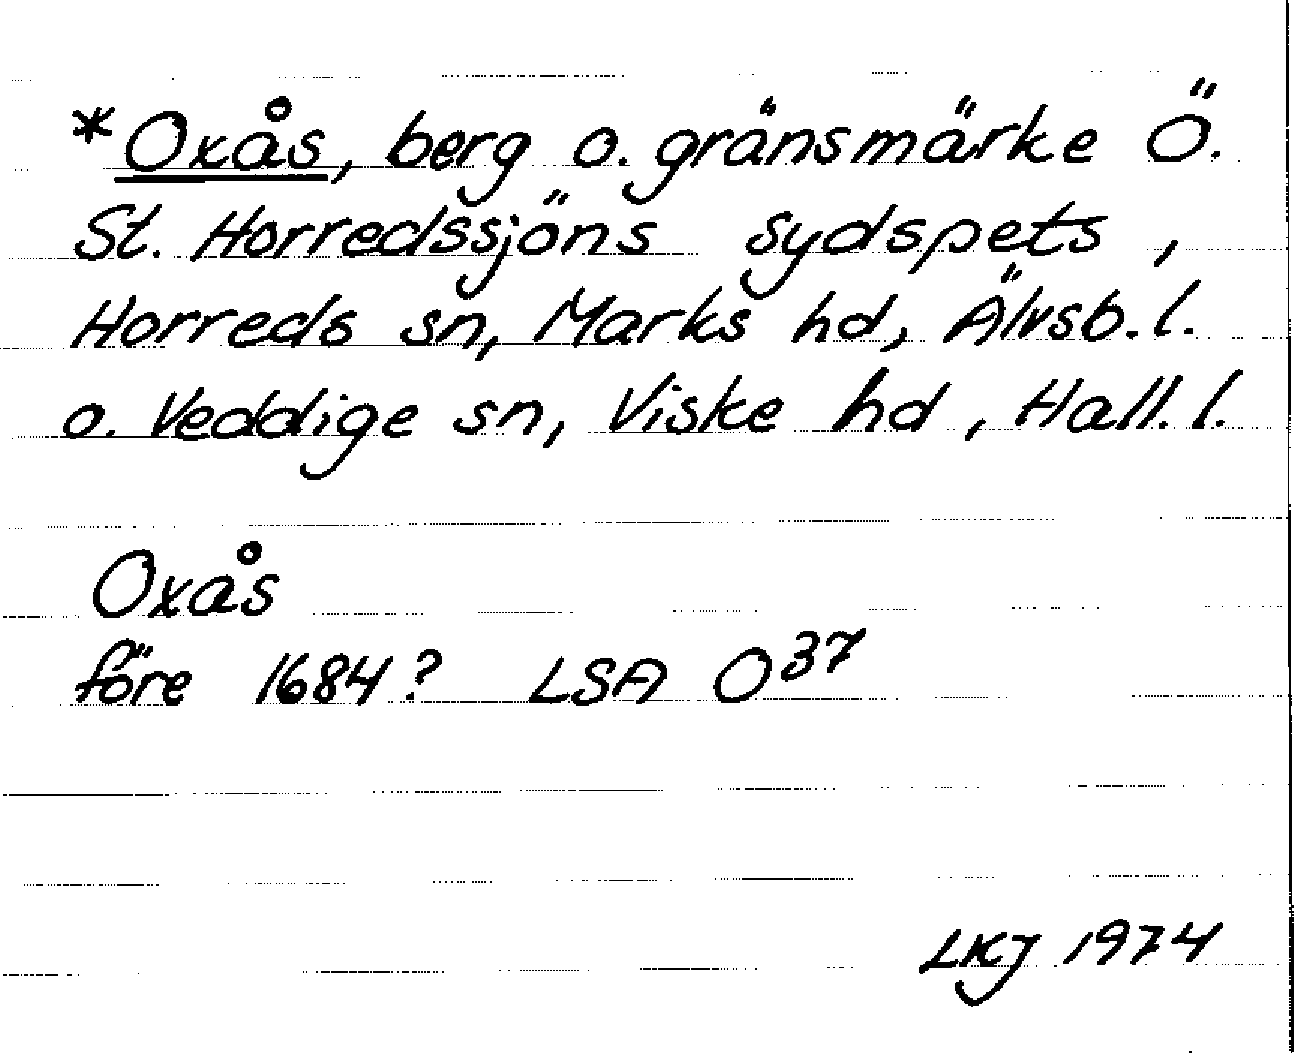 *Oxås, berg o. gränsmärke Ö.
St. Horredssjöns sydspets,
Horreds sn, Marks hd, Älvsb. l.
o. Veddige sn, Viske hd, Hall. l.
Oxås
före 1684? LSA O³⁷
LKJ 1974